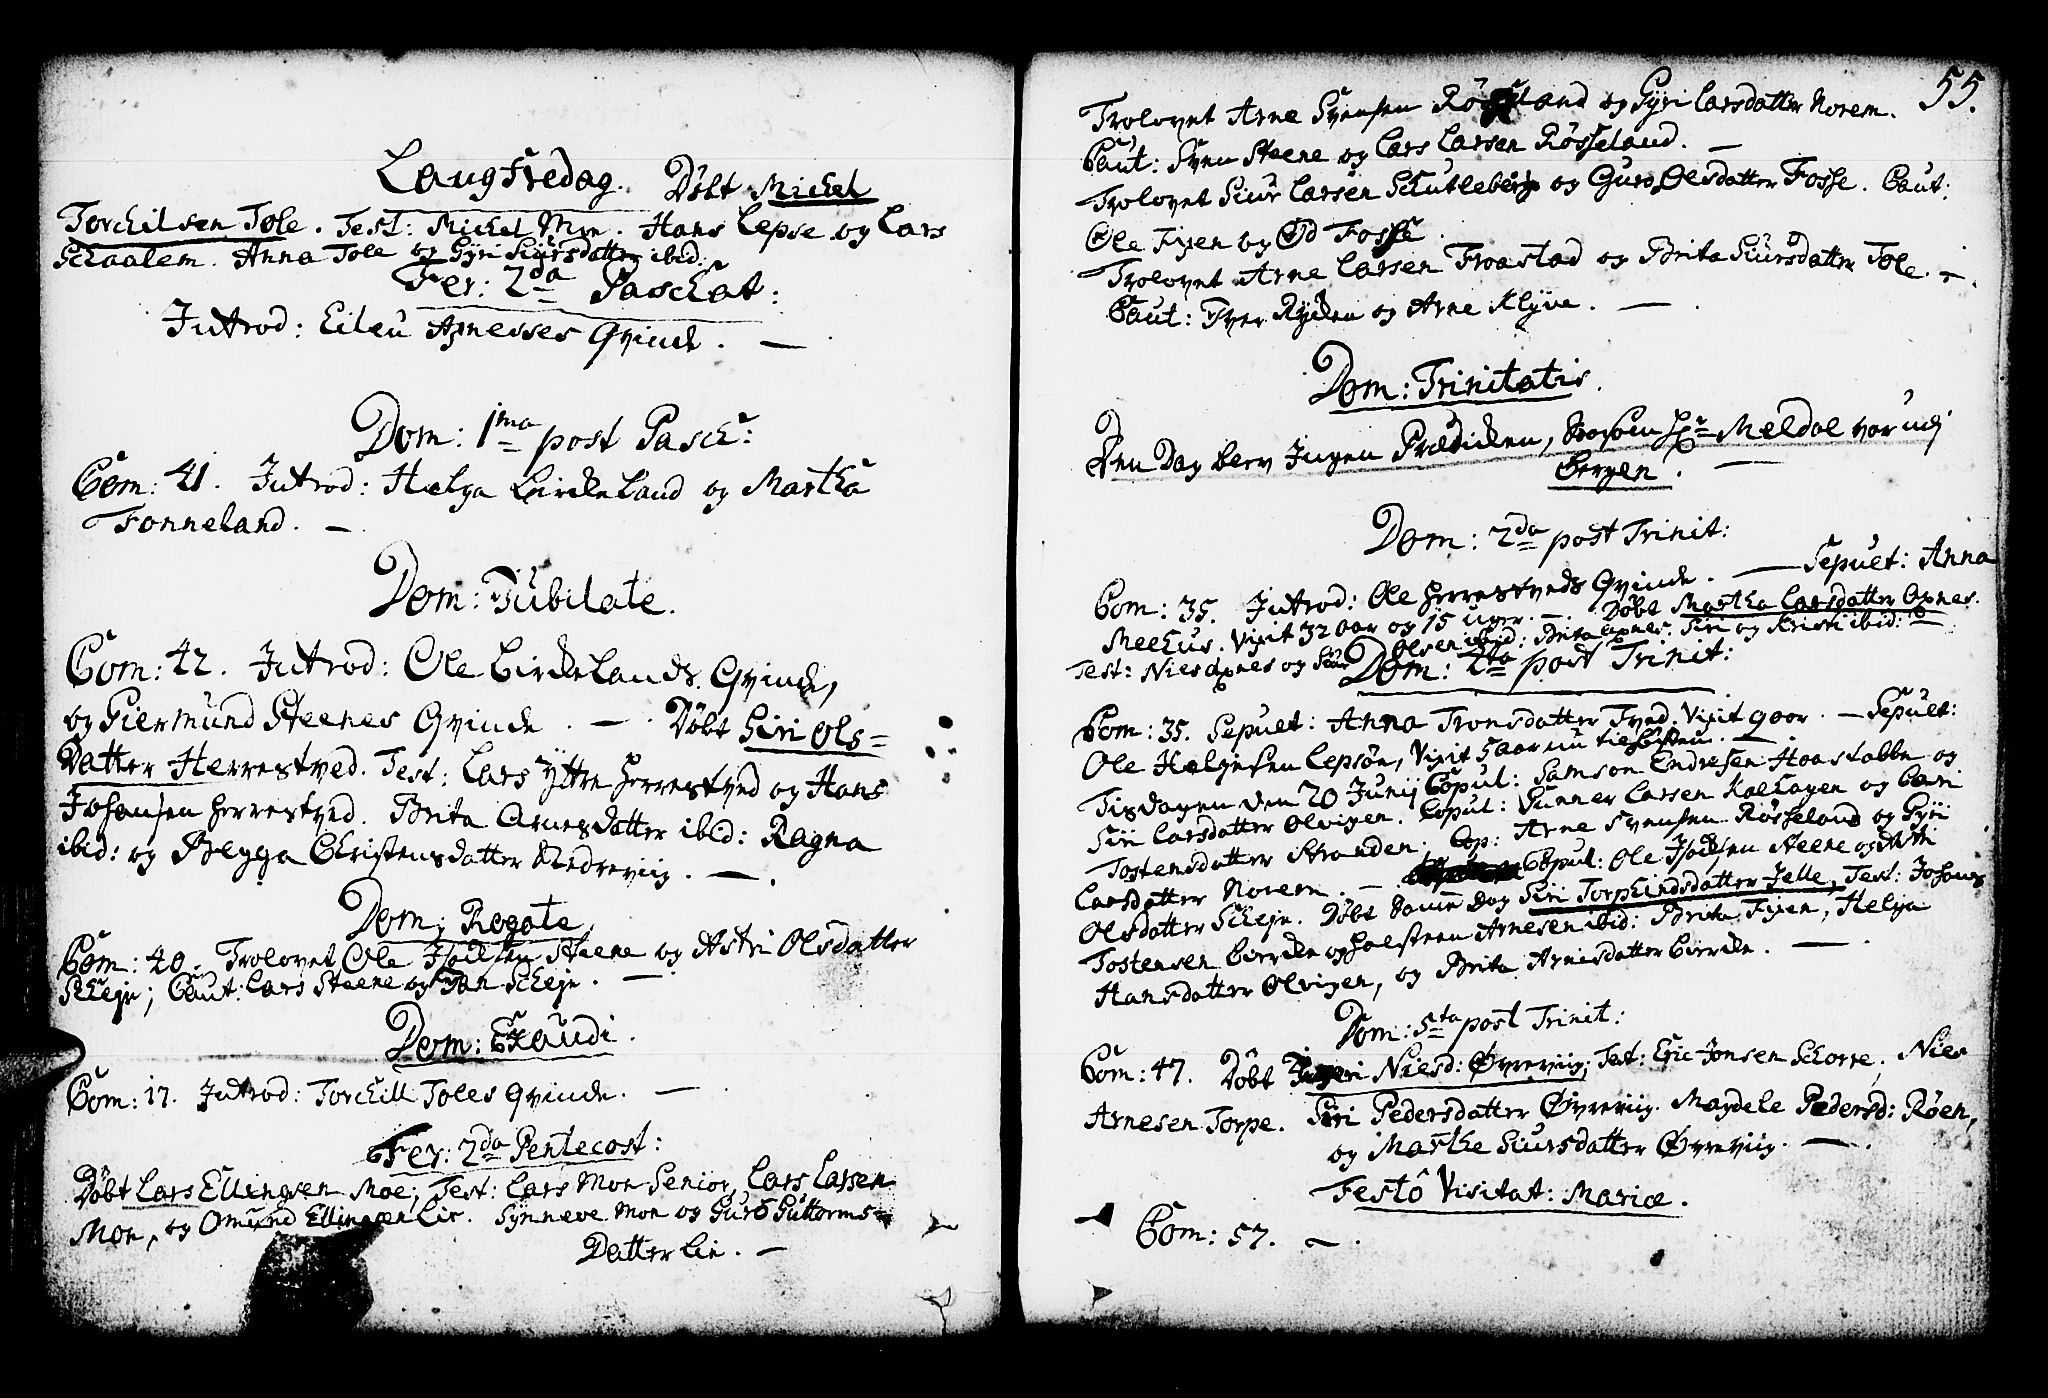 Langfredag. Døbt Michel
Torchilsen Tole. Test: Michel Moe. Hans Lepsø og Lars
Schaalem. Anna Tole og Gÿri Siursdatter ibid:
Fer: 2da Paschat:
Introd: Eilen Apnesses Qvinde. —
Dom: 1ma post Pasch:
Com: 41. Introd: Helga Birckeland og Martha
Fonneland. —
Dom: Jubilate.
Com: 42. Introd: Ole Birckelands Qvinde,
og Giermund Steenes Qvinde. — Døbt Siri Ols=
Datter Herrestved. Test: Lars Yttre Herrestved og Hans
Johansen Herrestved. Brita Arnesdatter ibid: Ragna
ibid: og Begga Christensdatter Nedreviig. —
Dom: Rogate
Com: 40. Trolovet Ole Isachsen Steene og Astri Olsdatter
Scheje; Caut: Lars Steene og Jan Scheje. —
Dom: Exaudi.
Com: 17. Introd: Torchill Toles Qvinde. —
Fer: 2da Pentecost:
Døbt Lars Ellingsen Moe; Test: Lars Moe Senior, Lars Larsen
Moe, og Omund Ellingsen Lie. Synneve Moe og Guro Guttorms=
Datter Lie. —
55.
Trolovet Arne Svensen Røsseland og Gÿri Larsdatter Norem.
Caut: Sven Steene og Lars Larsen Røsseland. —
Trolovet Siur Larsen Schutleberg og Guro Olsdatter Fosse. Caut:
Ole Fixen og Od Fosse.
Trolovet Arne Larsen Froastad og Brita Siursdatter Tole. —
Caut: Iver Rycken og Arne Klyve. —
Dom: Trinitatis.
Den Dag blev Ingen Prædicken, saasom Hr Meldal var udj
Bergen. —
Dom: 2da post Trinit:
Com: 35. Introd: Ole Herrestveds Qvinde. — Sepult: Anna
Meehus. Vixit 32 aar og 15 uger. — Døbt Martha Larsdatter Apnes.
Test: Niels Apnes og Siur Olsen ibid: Brita Apnes. Siri og Kristi ibid: —
Dom: 4ta post Trinit:
Com: 35. Sepult: Anna Tronsdatter Tved. Vixit 9 aar. — Sepult:
Ole Helgesen Lepsøn, Vixit 5 aar nu til høsten. —
Tisdagen den 20 Junij Copul: Samson Endresen Haastabbe og
Siri Larsdatter Olvigen. Copul: Gunner Larsen Kalhagen og Cari
Tostensdatter Stranden. Cop: Arne Svensen Røsseland og Gÿri
Larsdatter Norem. — Copul: Ole Isachsen Steene og Astri
Olsdatter Scheje. Døbt Samme Dag Siri Torphindsdatter Jelle, Test: Johans
Tostensen Birckee og Holsteen Arnesen ibid: Brita Fixen, Helga
Hansdatter Olvigen, og Brita Arnesdatter Birckee. —
Dom: 5ta post Trinit:
Com: 47. Døbt Nielsd: Øvreviig; Test: Eric Jonsen Schorre, Niels
Arnesen Torpe. Siri Pedersdatter Øvreviig. Magdele Pedersd: Røen,
og Marthe Siursdatter Øvreviig. —
Festô Visitat: Mariæ.
Com: 57. —